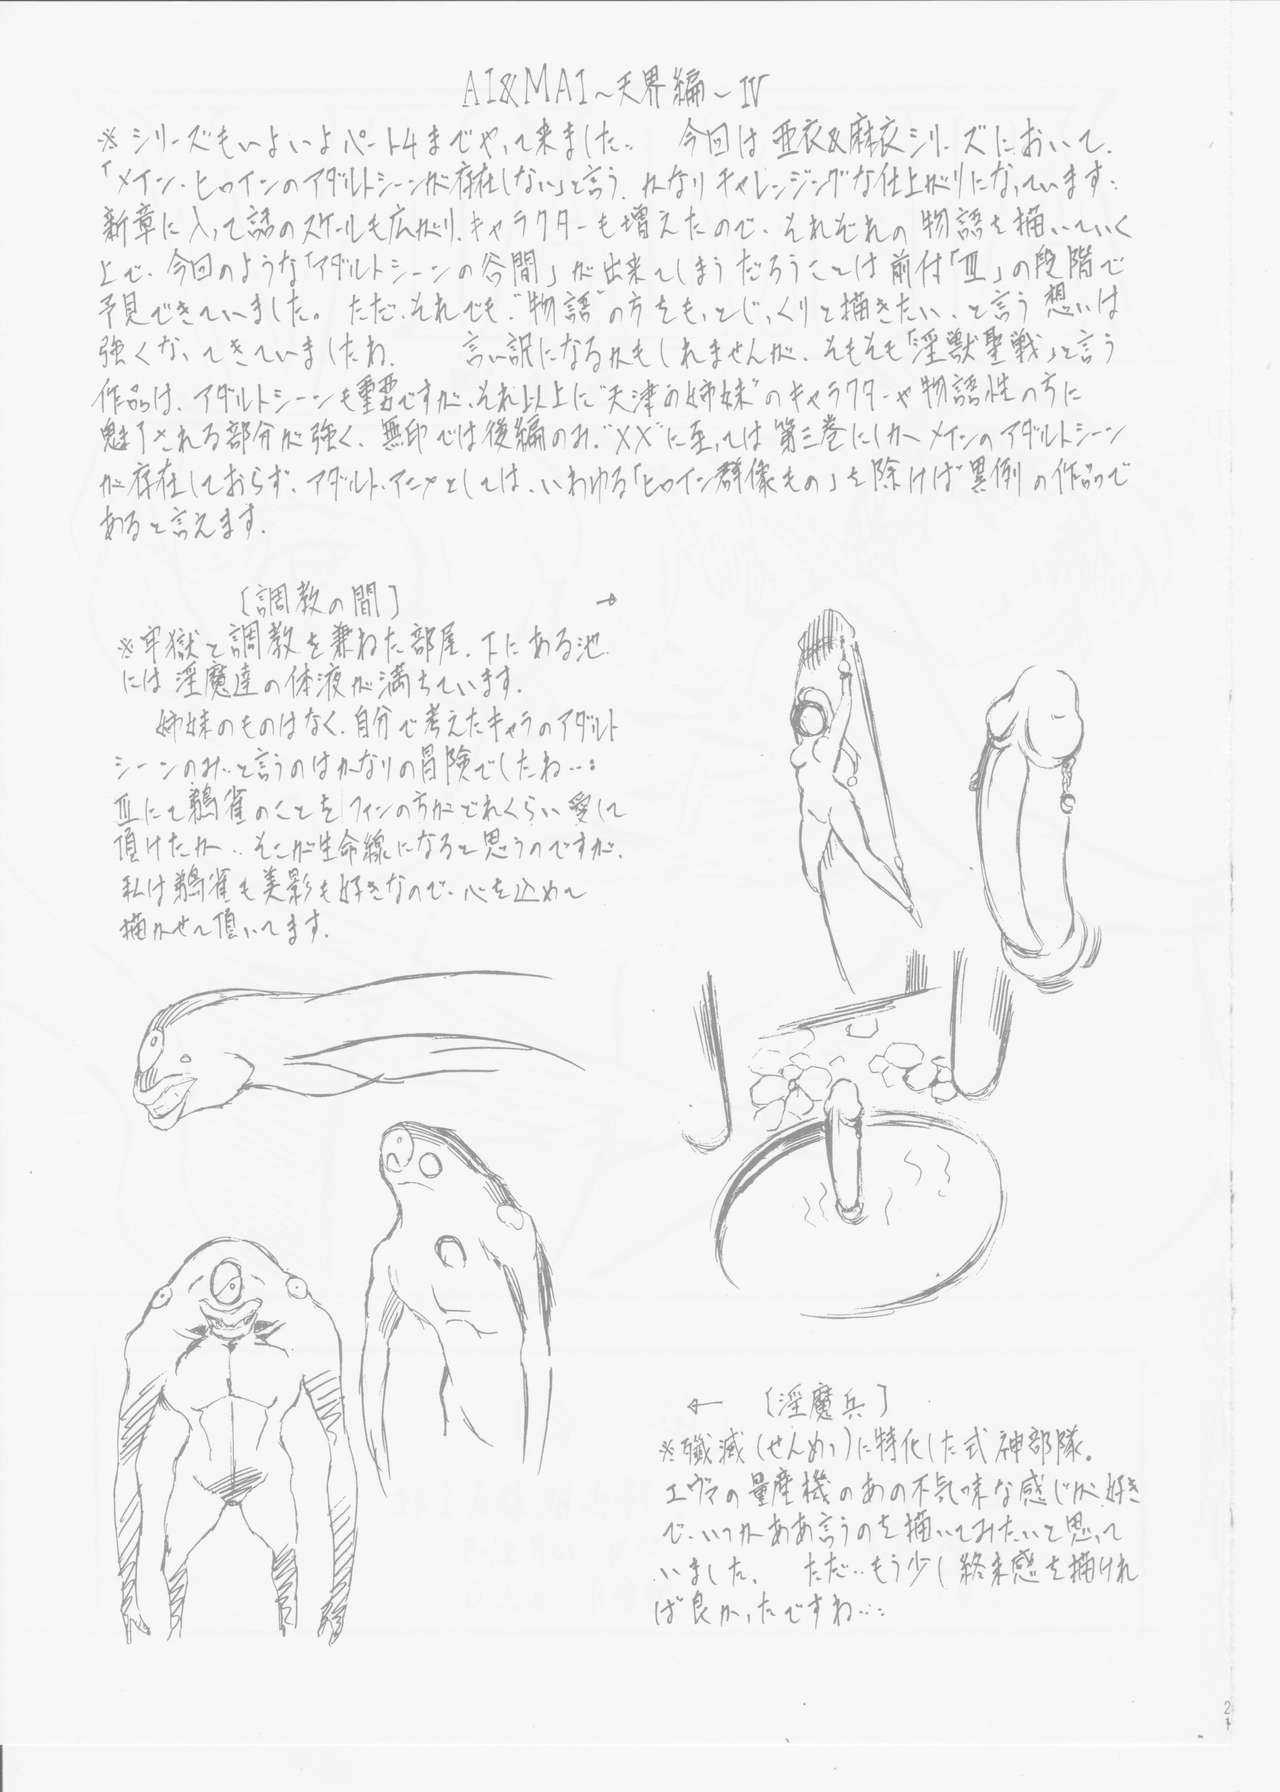 AI&MAI～天界編～Ⅳ
※シリーズもいよいよパート4までやって来ました。 今回は亜衣&麻衣シリーズにおいて、
「メイン・ヒロインのアダルトシーンが存在しない」と言う、かなりチャレンジングな仕上がりになっています。
新章に入って話のスケールも広がり、キャラクターも増えたので、それぞれの物語を描いていく
上で、今回のような「アダルトシーンの谷間」が出来てしまうだろうことは前付「Ⅲ」の段階で
予見できていました。ただ、それでも“物語”の方をもっとじっくりと描きたい、と言う想いは
強くなってきていましたね。 言い訳になるかもしれませんが、そもそも「淫獣聖戦」と言う
作品は、アダルトシーンも重要ですが、それ以上に“天津の姉妹”のキャラクターや物語性の方に
魅了される部分が強く、無印では後編のみ、“XX”に至っては第三巻にしかメインのアダルトシーン
が存在しておらず、アダルト、アニメとしては、いわゆる「ヒロイン群像もの」を除けば異例の作品で
あると言えます。
[調教の間] →
※牢獄と調教を兼ねた部屋。下にある池
には淫魔達の体液が満ちています。
姉妹のものはなく、自分で考えたキャラのアダルト
シーンのみ…と言うのはかなりの冒険でしたね…。
Ⅲにて鵺雀のことをファンの方がどれくらい愛して
頂けたか‥そこが生命線になると思うのですが、
私は鵺雀も美影も好きなので、心を込めて
描かせて頂いてます。
← [淫魔兵]
※殲滅(せんめつ)に特化した式神部隊。
エヴァの量産機のあの不気味な感じが好き
で、いつかああ言うのを描いてみたいと思って
いました。 ただ‥もう少し終末感を描けれ
ば良かったですね…。
2